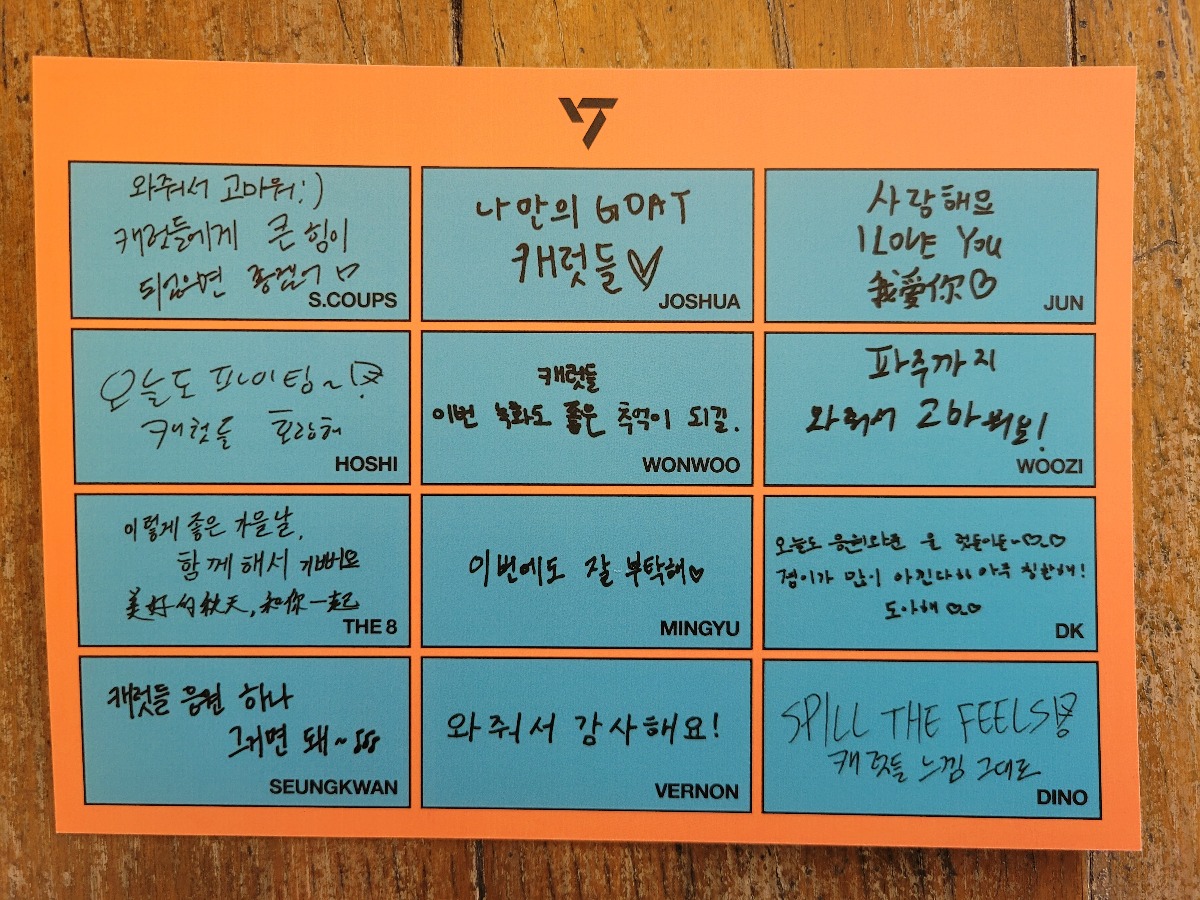 와줘서 고마워:)
캐럿들에게 큰 힘이
되었으면 좋겠어
S.COUPS
나만의 GOAT
캐럿들♡
JOSHUA
사랑해요
I LOVE YOU
我愛你♡
JUN
오늘도 파이팅~
캐럿들 호랑해
HOSHI
캐럿들
이번 녹화도 좋은 추억이 되길.
WONWOO
파주까지
와줘서 고마워요!
WOOZI
이렇게 좋은 가을날,
함께해서 기뻐요
美好的秋天,和你一起
THE 8
이번에도 잘 부탁해♡
MINGYU
오늘도 응원와준 울
많이 아낀다 아주
DK
캐럿들 응원 하나
그거면 돼~
SEUNGKWAN
와줘서 감사해요!
VERNON
SPILL THE FEELS
캐럿들 느낌 그대로
DINO